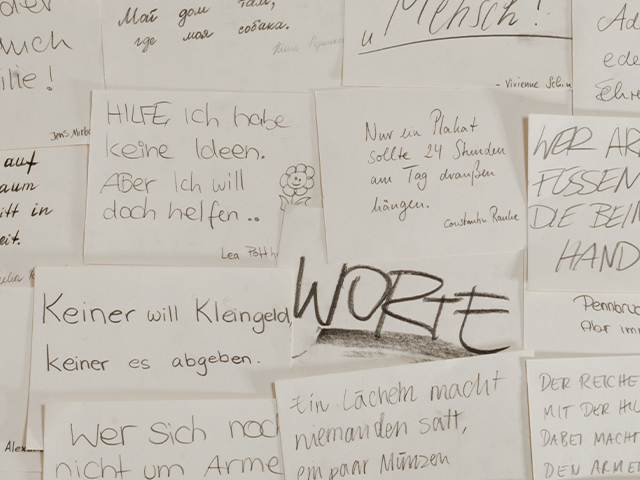 auch
ilie!
Мой дом там,
где моя собака.
u Mensch!
- Vivienne
Ad
ede
Ehre
Jens
HILFE, ich habe
keine Ideen.
ABer Ich will
doch helfen ..
Lea
Nur ein Plakat
sollte 24 Stunden
am Tag draußen
hängen.
Constantin
WER AR
FÜSSEN
DIE BEIN
HAND
auf
aum
itt in
eit.
Keiner will Kleingeld,
keiner es abgeben.
WORTE
Pennbruc
Aber imm
Wer sich noch
nicht um Arme
Ein Lächeln macht
niemanden satt,
ein paar Münzen
DER REICHE
MIT DER HU
DABEI MACHT
DEN ARMEN
Alex